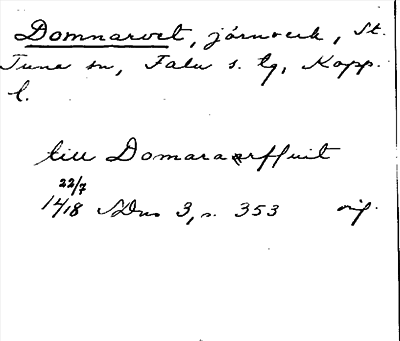 Domnarvet, järnverk, St.
Tuna sn, Falu s. tg, Kopp.
l.
till Domaraerffuit
22/7
1418 SDns 3, s. 353 orig.